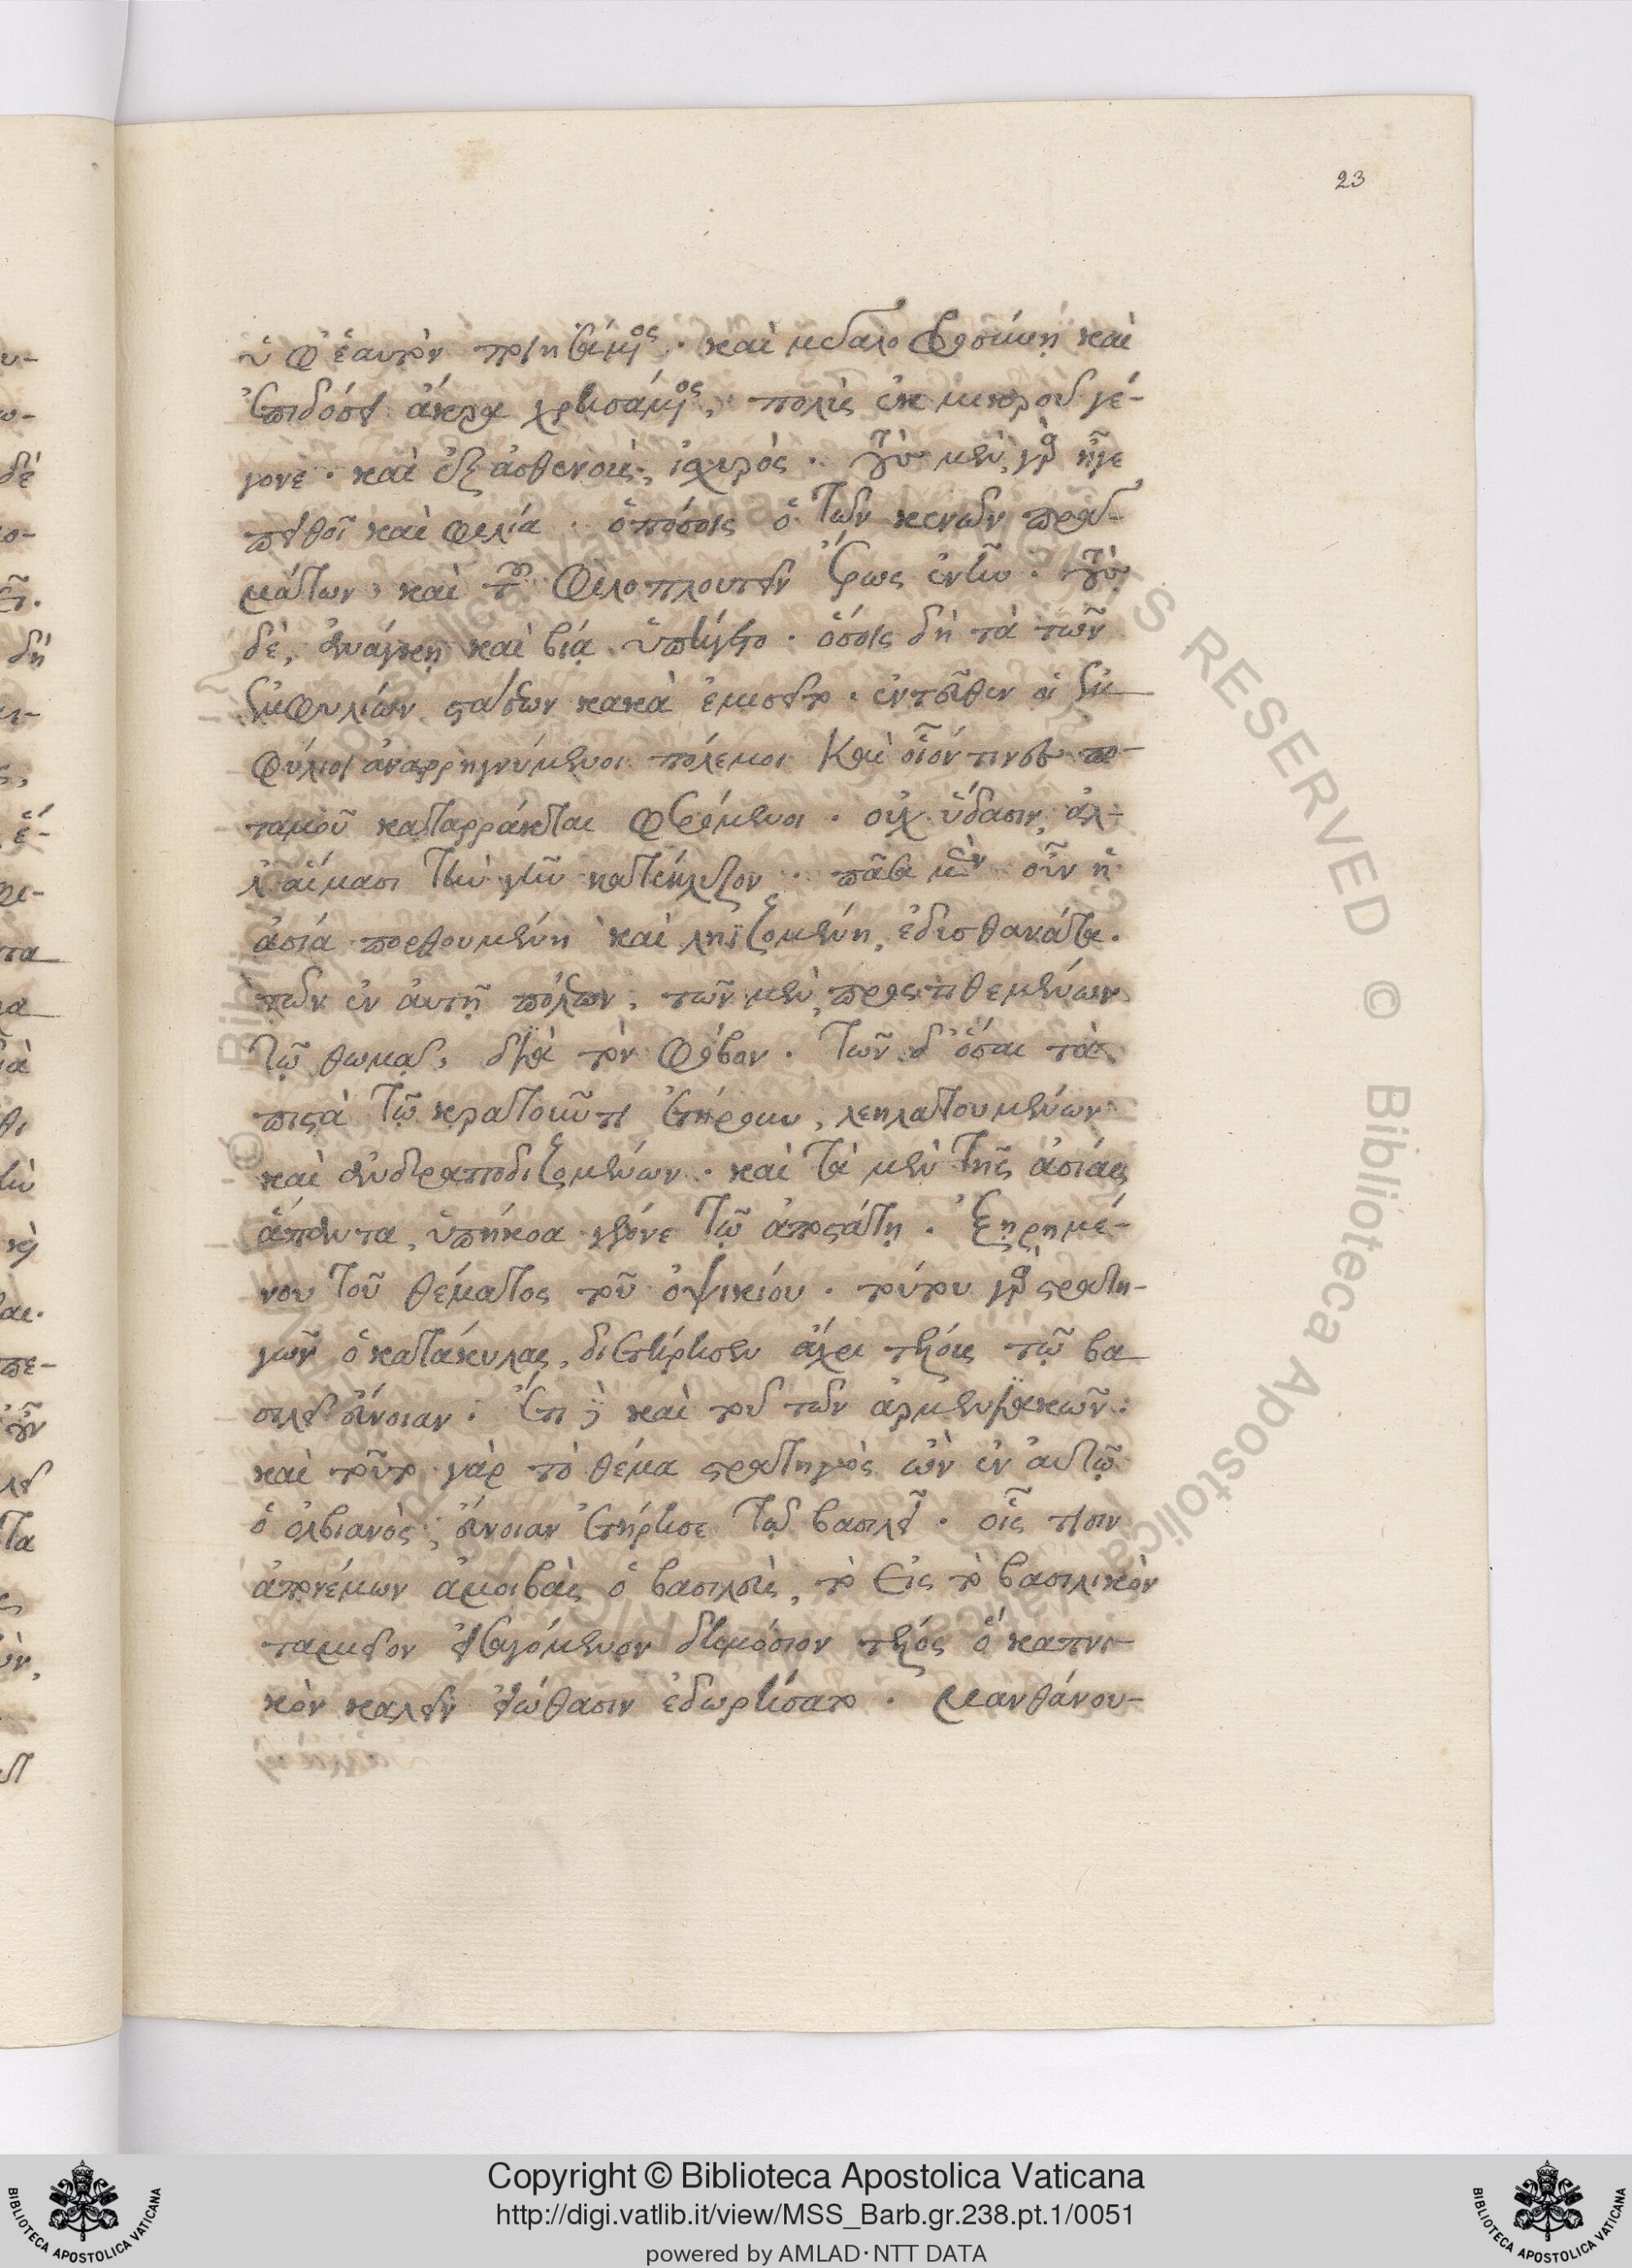 23
ὑφ' ἑαυτὸν ποιησάμενος. καὶ μεγαλοφροσύνῃ καὶ
ἐπιδόσει ἄκρᾳ χρησάμενος, πολὺς ἐκ μικροῦ γέ-
γονε. καὶ ἐξ ἀσθενοῦς, ἰσχυρός. τοὺς μὲν γὰρ ἦγε
πειθοῖ καὶ φιλίᾳ. ὁπόσοις ὁ τῶν κενῶν πραγ-
μάτων, καὶ τοῦ φιλοπλουτεῖν ἔρως ἐνῆν. τοὺς
δὲ, ἀνάγκῃ καὶ βίᾳ ὑπήγετο. ὅσοις δὴ τὰ τῶν
ἐμφυλίων στάσεων κακὰ ἐμισεῖτο. ἐντεῦθεν οἱ ἐμ-
φύλιοι ἀναρρηγνύμενοι πόλεμοι καὶ οἷόν τινες πο-
ταμοῦ καταρράκται φερόμενοι. οὐχ ὕδασιν, ἀλ-
λ' αἵμασι τὴν γῆν κατέκλυζον. πᾶσα μὲν οὖν ἡ
ἀσία πορθουμένη καὶ ληϊζομένη, ἐδυσθανάτα.
τῶν ἐν αὐτῇ πόλεων, τῶν μὲν προστιθεμένων
τῷ θωμᾷ, διὰ τὸν φόβον. τῶν δ' ὅσαι τὰ
πιστὰ τῷ κρατοῦντι ἐτήρουν, λεηλατουμένων
καὶ ἀνδραποδιζομένων. καὶ τὰ μὲν τῆς ἀσίας
ἅπαντα, ὑπήκοα γέγονε τῷ ἀποστάτῃ. ἐξῃρημέ-
νου τοῦ θέματος τοῦ ὀψικίου. τούτου γὰρ στρατη-
γῶν ὁ κατάκυλας, διετήρησεν ἄχρι τέλους τῷ βα
σιλεῖ εὔνοιαν. ἔτι δὲ καὶ τοῦ τῶν ἀρμενιακῶν.
καὶ τοῦτο γὰρ τὸ θέμα στρατηγὸς ὢν ἐν αὐτῷ
ὁ ὀλβιανὸς, εὔνοιαν ἐτήρησε τῷ βασιλεῖ. οἷς τισιν
ἀπονέμων ἀμοιβὰς ὁ βασιλεὺς, τὸ εἰς τὸ βασιλικὸν
ταμεῖον εἰσαγόμενον δημόσιον τέλος ὃ καπνι-
κὸν καλεῖν εἰώθασιν ἐδωρήσατο. μανθάνου-
Copyright © Biblioteca Apostolica Vaticana
http://digi.vatlib.it/view/MSS_Barb.gr.238.pt.1/0051
powered by AMLAD·NTT DATA